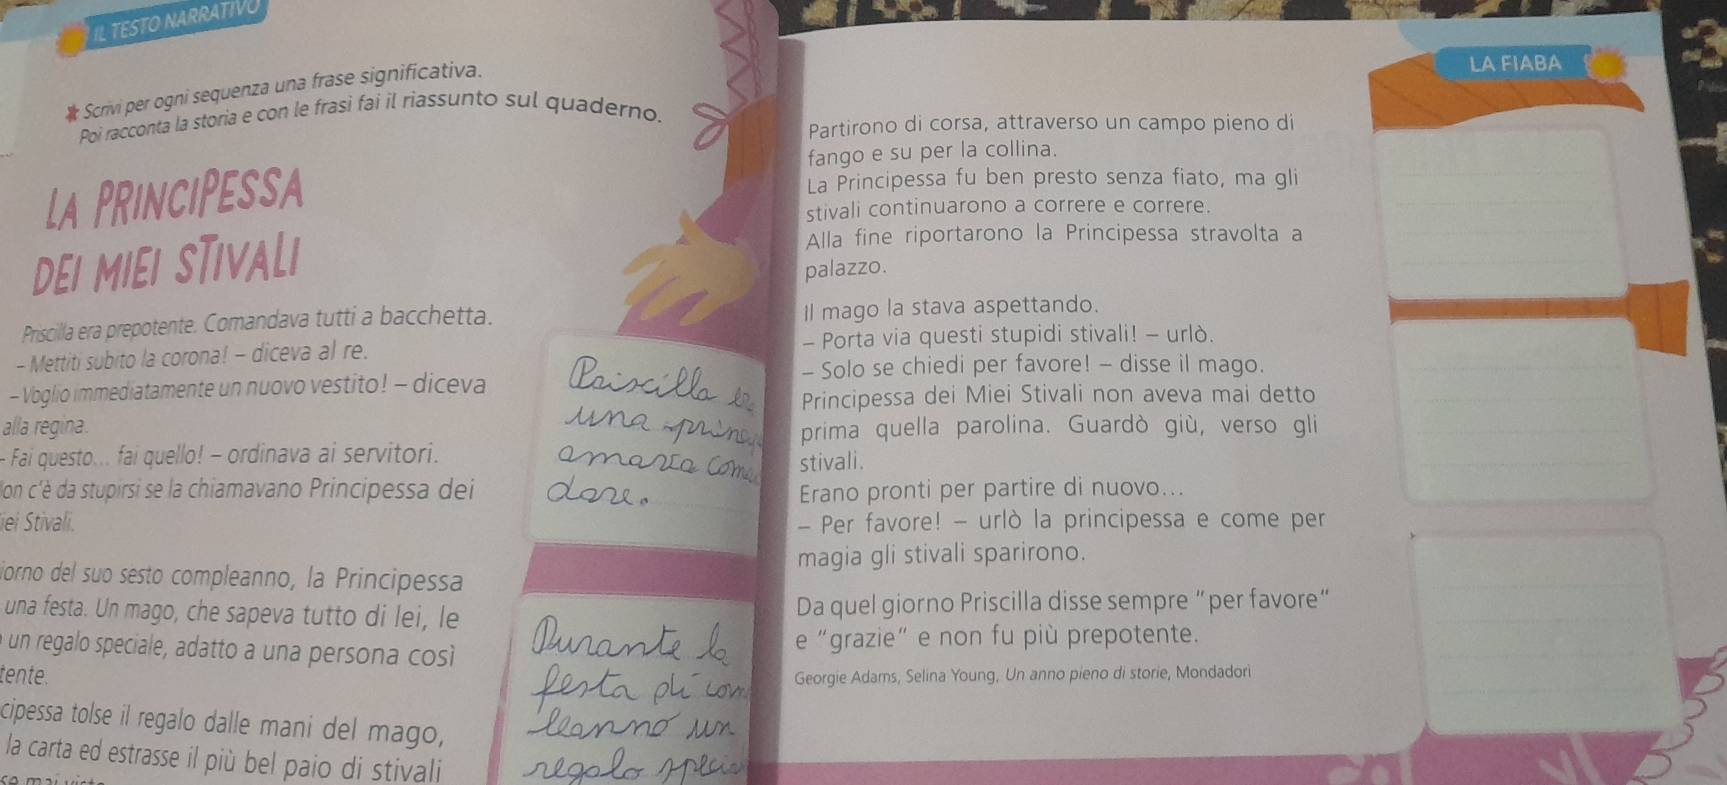 IL TESTO NARRATIVO
Scrivi per ogni sequenza una frase significativa.
Poi racconta la storia e con le frasi fai il riassunto sul quaderno.
LA PRINCIPESSA
DEI MIEI STIVALI
Priscilla era prepotente. Comandava tutti a bacchetta.
– Mettiti subito la corona! – diceva al re.
– Voglio immediatamente un nuovo vestito! – diceva
alla regina.
– Fai questo... fai quello! – ordinava ai servitori.
on c'è da stupirsi se la chiamavano Principessa dei
iei Stivali.
iorno del suo sesto compleanno, la Principessa
una festa. Un mago, che sapeva tutto di lei, le
un regalo speciale, adatto a una persona così
tente.
cipessa tolse il regalo dalle mani del mago,
la carta ed estrasse il più bel paio di stivali
Priscilla er
una princ
amava coma
dare.
Durante la
festa di com
leanno un
regalo specia
LA FIABA
Partirono di corsa, attraverso un campo pieno di
fango e su per la collina.
La Principessa fu ben presto senza fiato, ma gli
stivali continuarono a correre e correre.
Alla fine riportarono la Principessa stravolta a
palazzo.
Il mago la stava aspettando.
– Porta via questi stupidi stivali! – urlò.
– Solo se chiedi per favore! – disse il mago.
Principessa dei Miei Stivali non aveva mai detto
prima quella parolina. Guardò giù, verso gli
stivali.
Erano pronti per partire di nuovo...
– Per favore! – urlò la principessa e come per
magia gli stivali sparirono.
Da quel giorno Priscilla disse sempre "per favore"
e "grazie" e non fu più prepotente.
Georgie Adams, Selina Young, Un anno pieno di storie, Mondadori